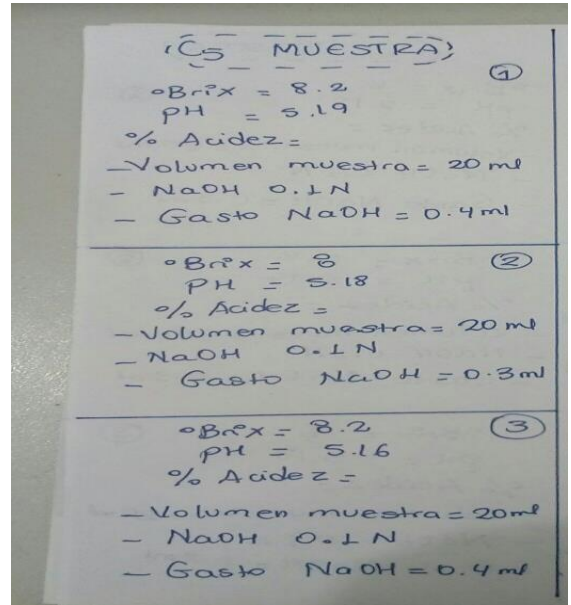 (C5 MUESTRA)
1
°Brix = 8.2
PH = 5.19
% Acidez =
- Volumen muestra = 20 ml
- NaOH 0.1 N
- Gasto NaOH = 0.4 ml
2
°Brix = 8
PH = 5.18
% Acidez =
- Volumen muestra = 20 ml
- NaOH 0.1 N
- Gasto NaOH = 0.3 ml
3
°Brix = 8.2
PH = 5.16
% Acidez =
- Volumen muestra = 20 ml
- NaOH 0.1 N
- Gasto NaOH = 0.4 ml